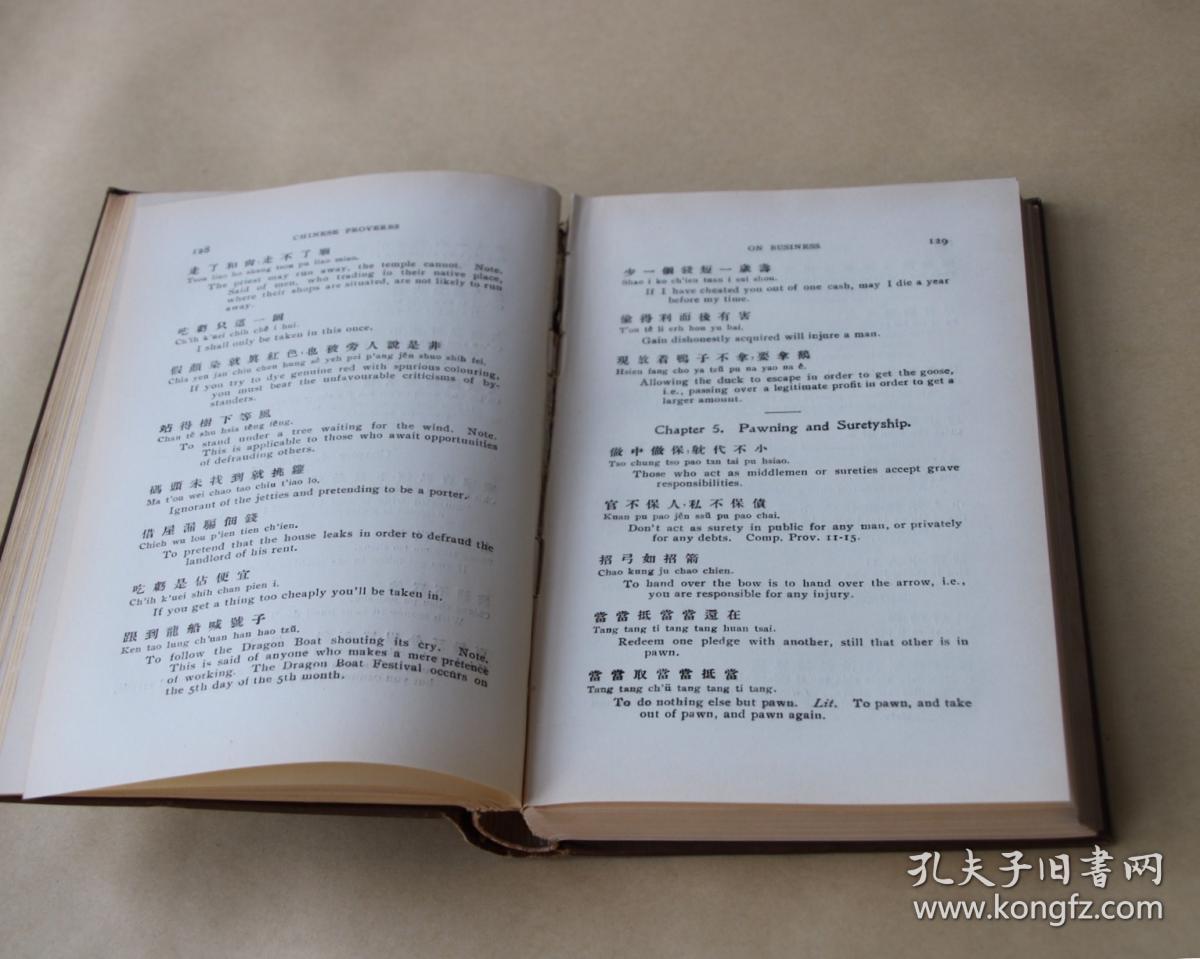 128
CHINESE PROVERBS
走了和尚，走不了廟
Tsou liao ho shang tsou pu liao miao.
The priest may run away, the temple cannot. Note.
Said of men, who trading in their native place,
where their shops are situated, are not likely to run
away.
吃虧只這一回
Ch'ih k'uei chih chê i hui.
I shall only be taken in this once.
假顏染就眞紅色，也被旁人說是非
Chia yen jan chiu chen hung sê yeh pei p'ang jên shuo shih fei.
If you try to dye genuine red with spurious colouring,
you must bear the unfavourable criticisms of by-
standers.
站得樹下等風
Chan tê shu hsia têng fêng.
To stand under a tree waiting for the wind. Note.
This is applicable to those who await opportunities
of defrauding others.
碼頭未找到就挑籮
Ma t'ou wei chao tao chiu t'iao lo.
Ignorant of the jetties and pretending to be a porter.
借屋漏騙佃錢
Chieh wu lou p'ien tien ch'ien.
To pretend that the house leaks in order to defraud the
landlord of his rent.
吃虧是佔便宜
Ch'ih k'uei shih chan pien i.
If you get a thing too cheaply you'll be taken in.
跟到龍船喊號子
Ken tao lung ch'uan han hao tzŭ.
To follow the Dragon Boat shouting its cry. Note.
This is said of anyone who makes a mere pretence
of working. The Dragon Boat Festival occurs on
the 5th day of the 5th month.
ON BUSINESS
129
少一個錢短一歲壽
Shao i ko ch'ien tuan i sui shou.
If I have cheated you out of one cash, may I die a year
before my time.
偷得利而後有害
T'ou tê li erh hou yu hai.
Gain dishonestly acquired will injure a man.
現放着鴨子不拿，要拿鵝
Hsien fang cho ya tzŭ pu na yao na ê.
Allowing the duck to escape in order to get the goose,
i.e., passing over a legitimate profit in order to get a
larger amount.
Chapter 5. Pawning and Suretyship.
做中做保，躭代不小
Tso chung tso pao tan tai pu hsiao.
Those who act as middlemen or sureties accept grave
responsibilities.
官不保人，私不保債
Kuan pu pao jên ssŭ pu pao chai.
Don't act as surety in public for any man, or privately
for any debts. Comp. Prov. 11-15.
招弓如招箭
Chao kung ju chao chien.
To hand over the bow is to hand over the arrow, i.e.,
you are responsible for any injury.
當當抵當當還在
Tang tang ti tang tang huan tsai.
Redeem one pledge with another, still that other is in
pawn.
當當取當當抵當
Tang tang ch'ü tang tang ti tang.
To do nothing else but pawn. Lit. To pawn, and take
out of pawn, and pawn again.
孔夫子旧书网
www.kongfz.com